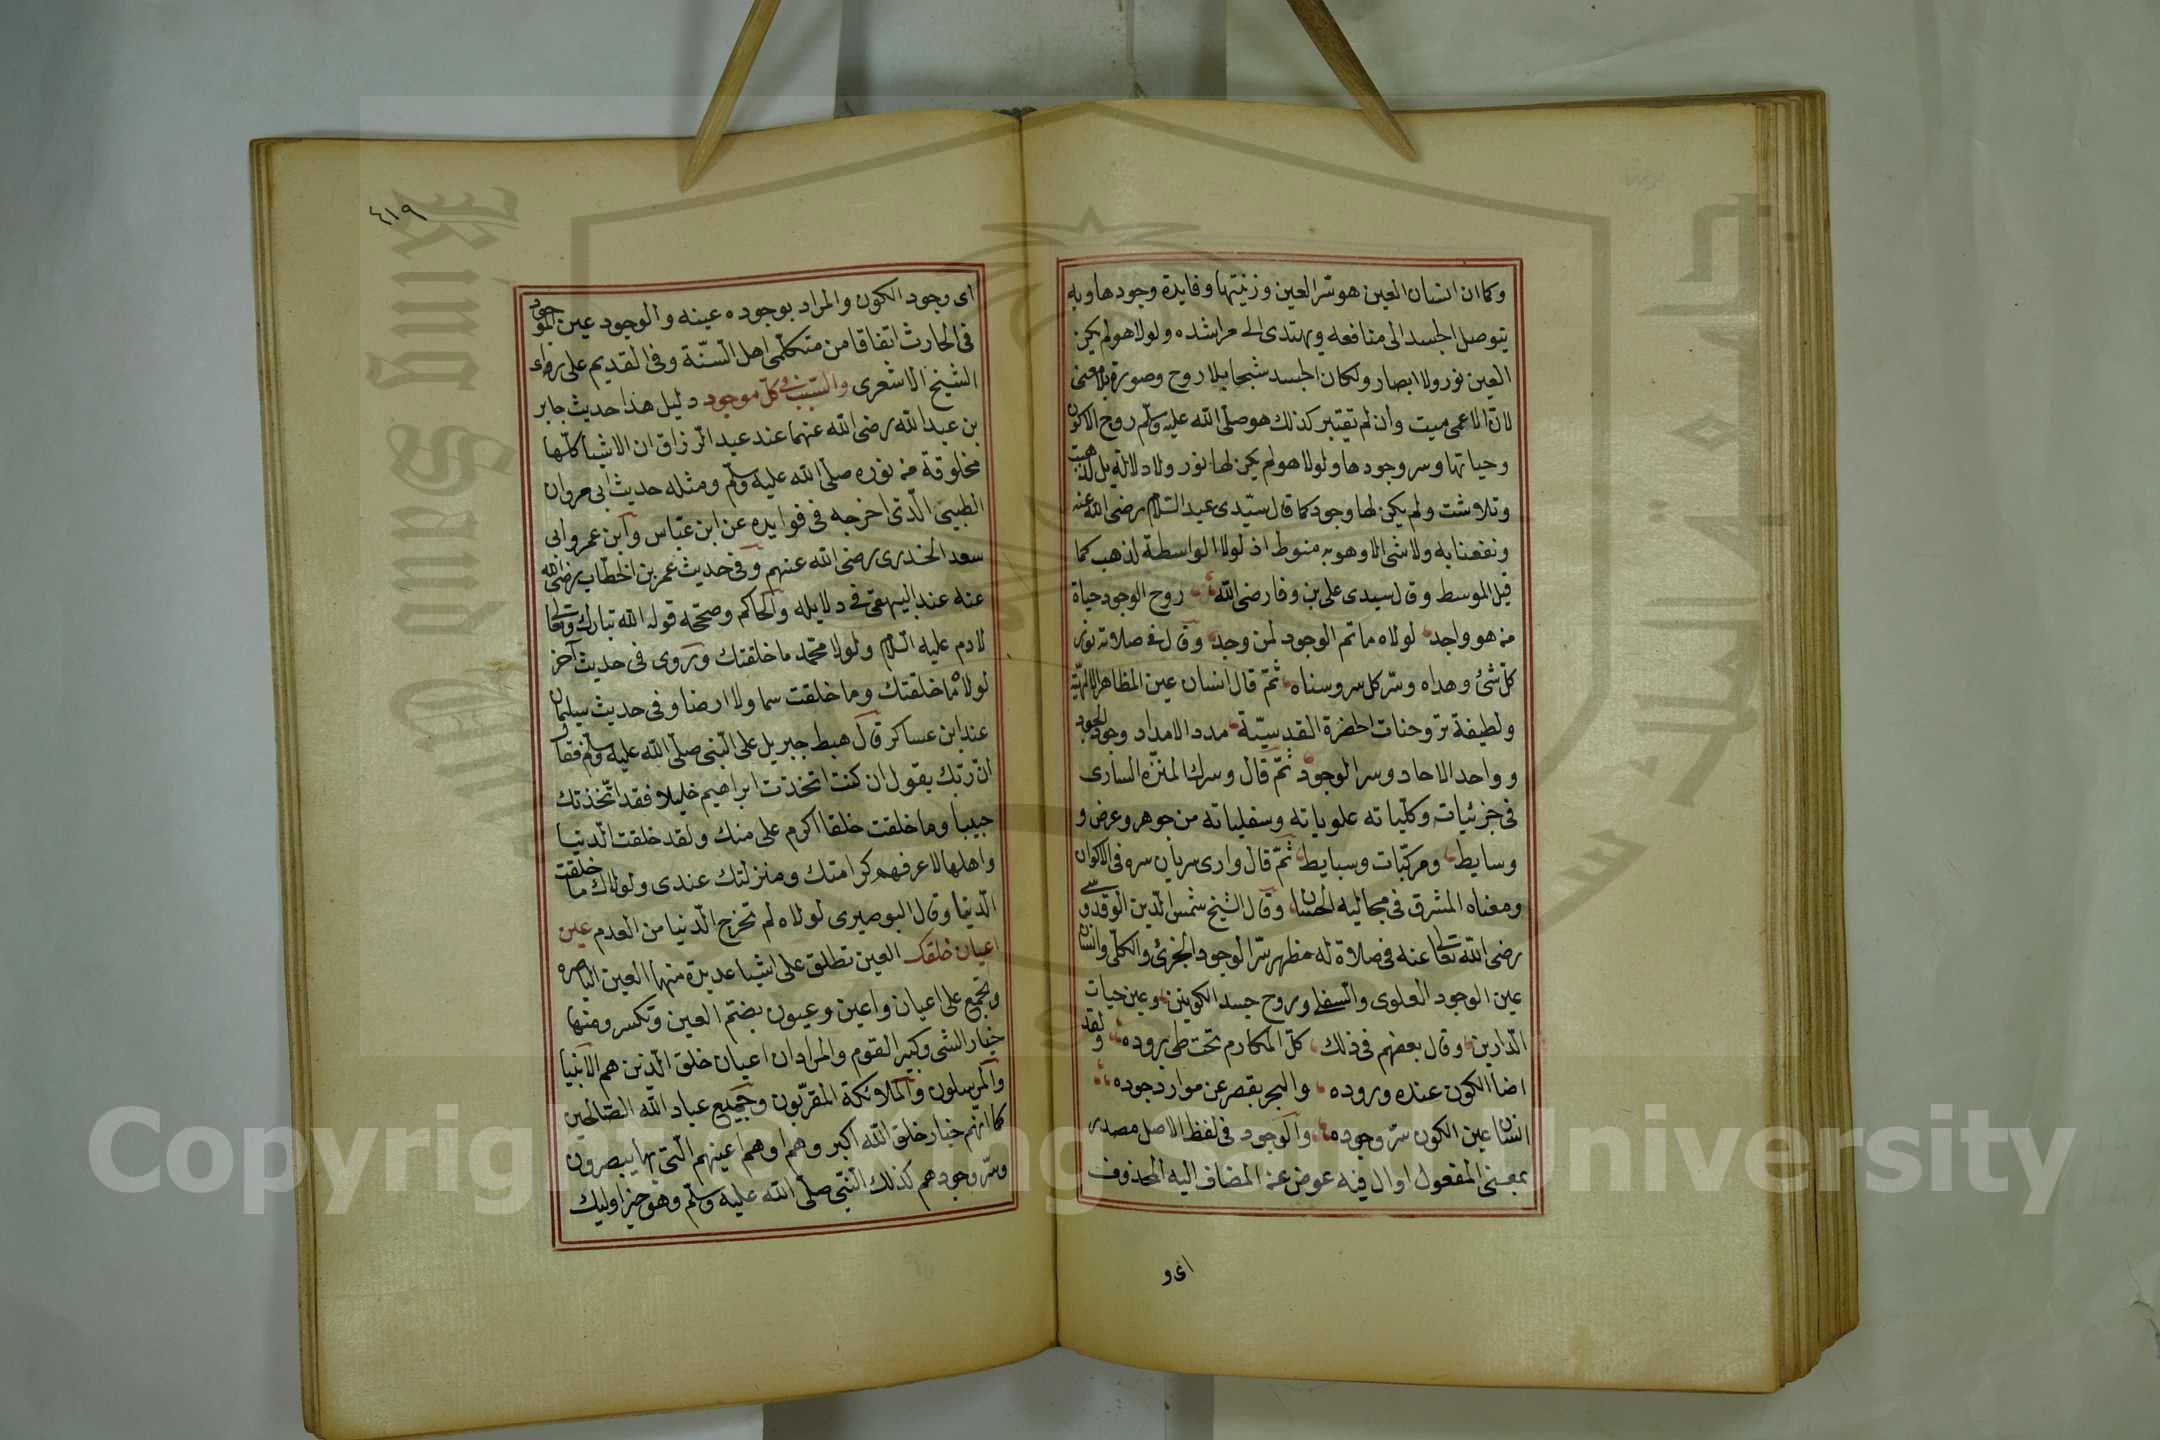 وكما ان انسان العين هو سر العين وزينتها وفايدة وجودها وبه
يتوصل الجسد الى منافعه ويهتدى الى مراشده ولولا هو لم يكن
العين نور ولا ابصار ولكان الجسد شبحا بلا روح وصورة بلا معنى
لان الاعمى ميت وان لم يقبر كذلك هو صلى الله عليه وسلم روح الاكوان
وحياتها وسر وجودها ولولا هو لم يكن لها نور ولا دلالة بل لذهبت
وتلاشت ولم يكن لها وجود كما قال سيدى عبد السلام رضى الله عنه
ونفعنا به ولا شى الا وهو به منوط اذ لولا الواسطة لذهب كما
قيل الموسط وقال سيدى على بن وفا رضى الله روح الوجود حياة
من هو واجد لولاه ما تم الوجود لمن وجد وقال فى صلاته نور
كل شئ وهداه وسر كل سر وسناه ثم قال انسان عين المظاهر الالهية
ولطيفة تروحنات الحضرة القدسية مدد الامداد وجود الجود
وواحد الاحاد وسر الوجود ثم قال وسرك المنزه السارى
فى جزئياته وكلياته علوياته وسفلياته من جوهر وعرض و
وسايط ومركبات وبسايط ثم قال وارى سريان سره فى الاكوان
ومعناه المشرق فى مجاليه الحسان وقال الشيخ شمس الدين
رضى الله تعالى عنه فى صلاة له مظهر سر الوجود الجزئ والكلى وانسان
عين الوجود العلوى والسفلى وروح جسد الكونين وعين حيات
الدارين وقال بعضهم فى ذلك كل المكارم تحت طى بروده ولقد
اضا الكون عند وروده والبحر يقصر عن موارد جوده
انسان عين الكون سر وجوده والوجود فى لفظ الاصل مصدر
بمعنى المفعول او ال فيه عوض عن المضاف اليه المحذوف
اى و
٤١٩
اى وجود الكون والمراد بوجوده عينه والوجود عين الموجود
فى الحارث اتفاقا من متكلمى اهل السنة وفى القديم على راى
الشيخ الاشعرى والسبب فى كل موجود دليل هذا حديث جابر
بن عبد الله رضى الله عنهما عند عبد الرزاق ان الاشيا كلها
مخلوقة من نوره صلى الله عليه وسلم ومثله حديث ابى مروان
الطبنى الذى اخرجه فى فوايده عن ابن عباس وابن عمر وابى
سعد الخدرى رضى الله عنهم وفى حديث عمر بن الخطاب رضى الله
عنه عند البيهقى فى دلايله والحاكم وصححه قوله الله تبارك وتعالى
لادم عليه السلام ولولا محمد ما خلقتك وروى فى حديث آخر
لولاه ما خلقتك وما خلقت سما ولا ارضا وفى حديث سيلمان
عند ابن عساكر قال هبط جبريل على النبى صلى الله عليه وسلم فقال
ان ربك يقول ان كنت اتخذت ابراهيم خليلا فقد اتخذتك
حبيبا وما خلقت خلقا اكرم على منك ولقد خلقت الدنيا
واهلها لاعرفهم كرامتك ومنزلتك عندى ولولاك ما خلقت
الدنيا وقال البوصيرى لولاه لم تخرج الدنيا من العدم عين
اعيان خلقك العين تطلق على اشيا عديدة منها العين الباصره
وتجمع على اعيان واعين وعيون بضم العين وتكسر ومنها
خيار الشى وكبير القوم والمراد ان اعيان خلق الذين هم الانبيا
والمرسلون والملائكة المقربون وجميع عباد الله الصالحين
كما انهم خيار خلق الله اكبر وهم اوهم اعينهم التى بها يبصرون
وسر وجودهم كذلك النبى صلى الله عليه وسلم وهو خير اوليك
Copyright © King Saud University